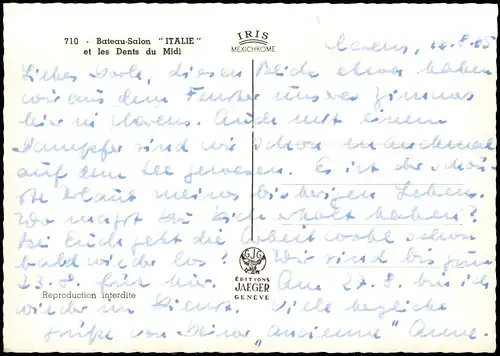 710 - Bateau-Salon "ITALIE"
et les Dents du Midi
IRIS
MEXICHROME
Clarens, 12.8.65
Liebes Dorle, diesen Blick etwa haben
wir aus dem Fenster unseres Zimmers
hier in Clarens. Auch mit einem
Dampfer sind wir schon manchmal
auf dem See gewesen. Es ist der schön-
ste Urlaub meines bisherigen Lebens.
Wo magst Du Dich erholt haben?
Bei Euch geht die Arbeit wohl schon
bald wieder los! Wir sind bis zum
23.8. für hier. Am 27.8. bin ich
wieder im Dienst. Viele herzliche
Grüße von Deiner „ancienne" Anne.
GJG
ÉDITIONS
JAEGER
GENÈVE
Reproduction interdite